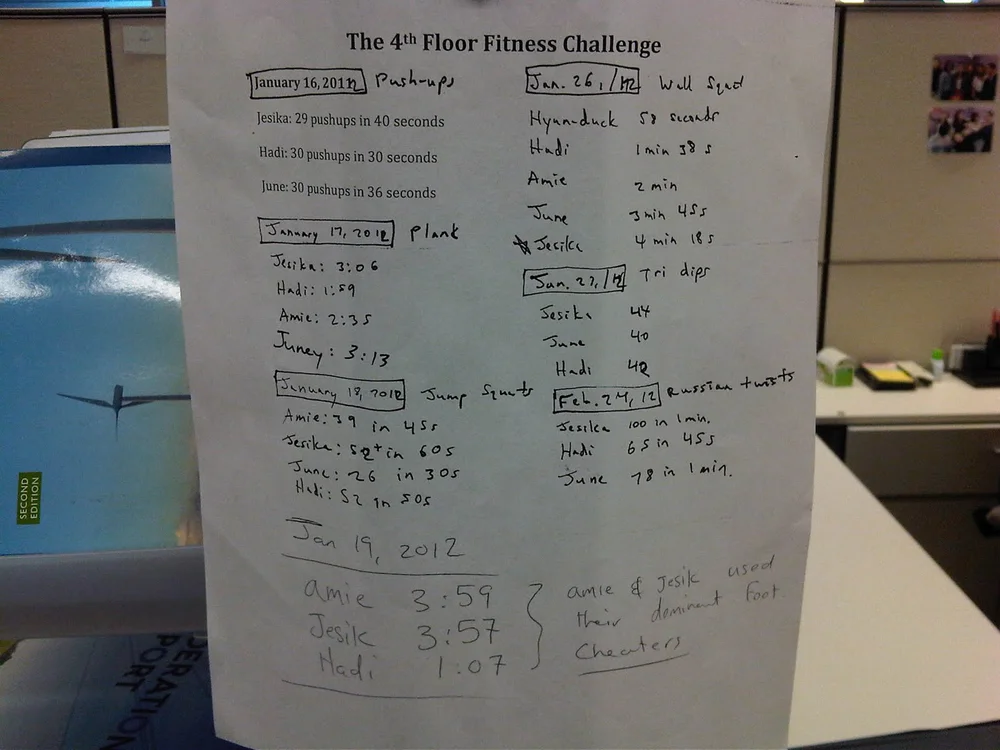 The 4th Floor Fitness Challenge
January 16, 2012 Push-ups
Jesika: 29 pushups in 40 seconds
Hadi: 30 pushups in 30 seconds
June: 30 pushups in 36 seconds
January 17, 2012 Plank
Jesika: 3:06
Hadi: 1:59
Amie: 2:35
Juney: 3:13
January 18, 2012 Jump Squats
Amie: 39 in 45s
Jesika: 52+ in 60s
June: 26 in 30s
Hadi: 52 in 50s
Jan 19, 2012
amie 3:59
Jesik 3:57
Hadi 1:07
amie & Jesik used
their dominant foot.
Cheaters
Jan. 26, /12 Wall Squat
Hyun-duck 58 seconds
Hadi 1 min 38 s
Amie 2 min
June 3 min 45s
Jesika 4 min 18s
Jan. 27, /12 Tri dips
Jesika 44
June 40
Hadi 42
Feb. 24, 12 Russian twists
Jesika 100 in 1 min.
Hadi 65 in 45s
June 78 in 1 min.
SECOND
EDITION